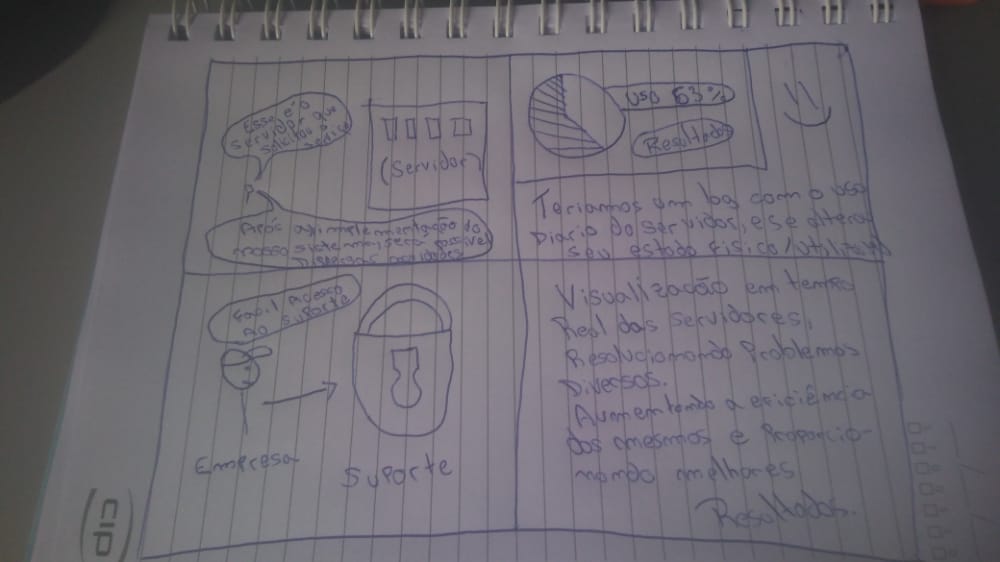 Esse é o
servidor
solicitado que
(Servidor)
Após a implementação do
nosso systema, será possível
diversas
USO 63%
Resultados
Teriamos um log com o uso
Diario do servidor, e se altera
seu estado fisico/utilitario
Facil Acesso
ao suporte
Empresa
Suporte
Visualização em tempo
Real dos servidores,
Resolucionando Problemas
Diversos.
Aumentando a eficiência
dos mesmos e Proporcio-
nando melhores
Resultados.
CIP